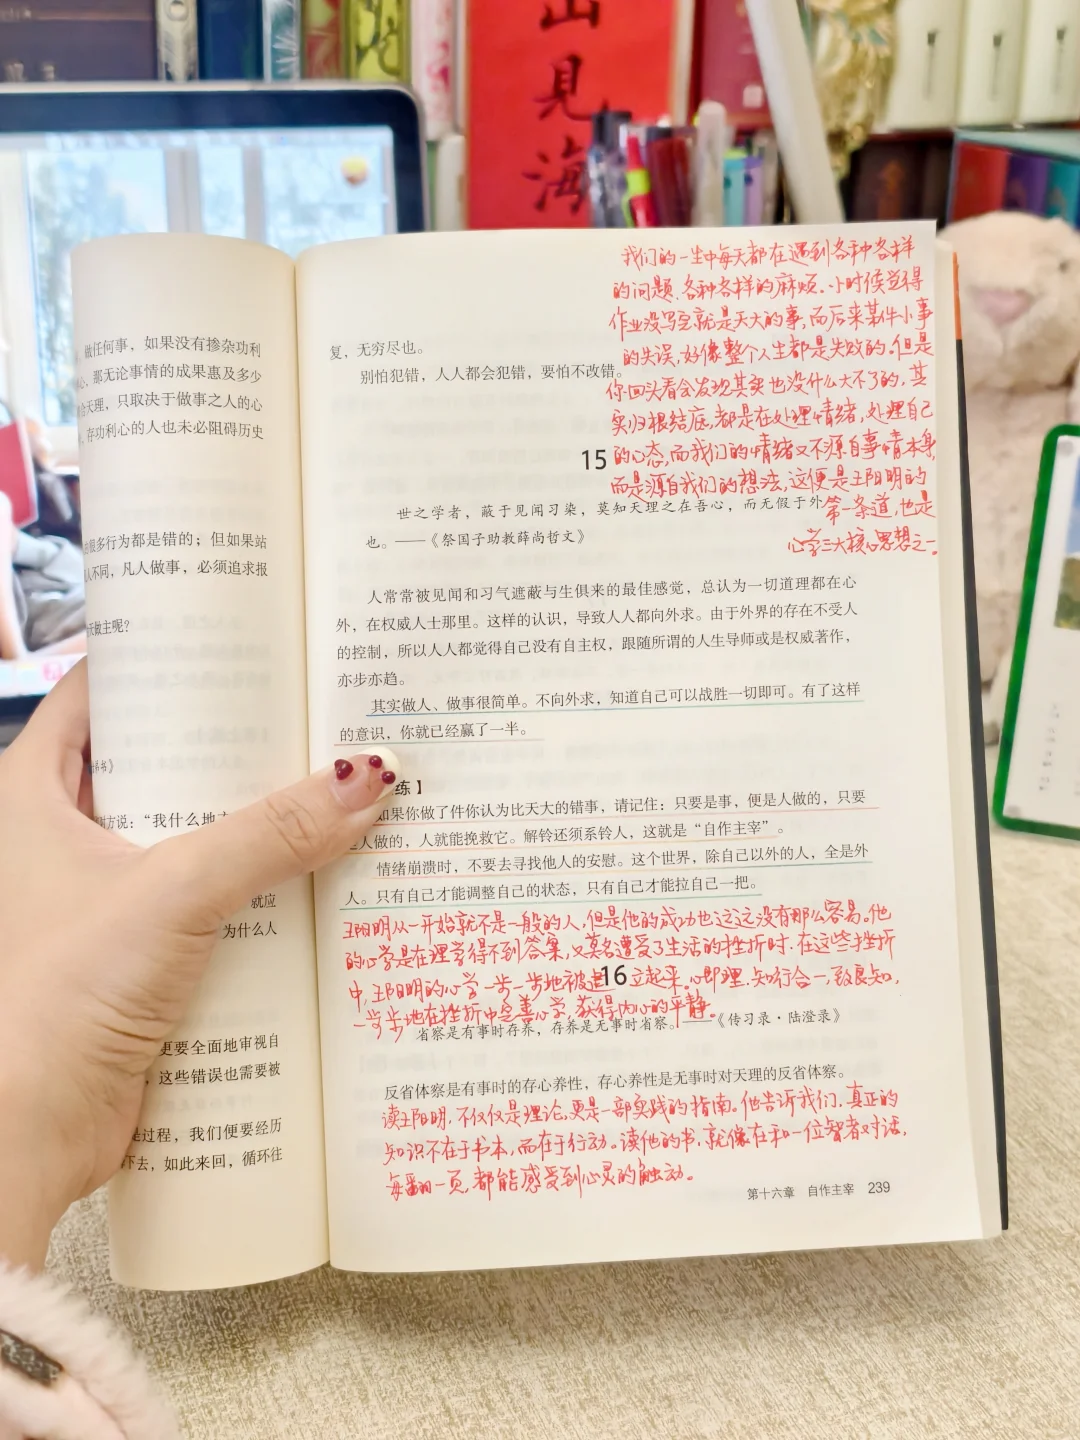 山
见
海
做任何事，如果没有掺杂功利
心，那无论事情的成果惠及多少
合天理，只取决于做事之人的心
，存功利心的人也未必阻碍历史
很多行为都是错的；但如果站
人不同，凡人做事，必须追求报
做主呢？
书》
方说：“我什么地
就应
为什么人
更要全面地审视自
，这些错误也需要被
是过程，我们便要经历
下去，如此来回，循环往
复，无穷尽也。
别怕犯错，人人都会犯错，要怕不改错。
我们的一生中每天都在遇到各种各样
的问题、各种各样的麻烦.小时候觉得
作业没写完就是天大的事，而后来某件小事
的失误，好像整个人生都是失败的。但是
你回头看会发现其实也没什么大不了的，其
实归根结底，都是在处理情绪，处理自己
的心态，而我们的情绪又不源自事情本身，
而是源自我们的想法，这便是王阳明的
第一条道，也是
心学三大核心思想之一。
15
世之学者，蔽于见闻习染，莫知天理之在吾心，而无假于外
也。——《祭国子助教薛尚哲文》
人常常被见闻和习气遮蔽与生俱来的最佳感觉，总认为一切道理都在心
外，在权威人士那里。这样的认识，导致人人都向外求。由于外界的存在不受人
的控制，所以人人都觉得自己没有自主权，跟随所谓的人生导师或是权威著作，
亦步亦趋。
其实做人、做事很简单。不向外求，知道自己可以战胜一切即可。有了这样
的意识，你就已经赢了一半。
练】
如果你做了件你认为比天大的错事，请记住：只要是事，便是人做的，只要
是人做的，人就能挽救它。解铃还须系铃人，这就是“自作主宰”。
情绪崩溃时，不要去寻找他人的安慰。这个世界，除自己以外的人，全是外
人。只有自己才能调整自己的状态，只有自己才能拉自己一把。
王阳明从一开始就不是一般的人，但是他的成功也远远没有那么容易。他
的心学是在理学得不到答案，又莫名遭受了生活的挫折时.在这些挫折
中，王阳明的心学一步一步地被建立起来。心即理.知行合一，致良知，
一步步地在挫折中完善心学，获得内心的平静。
16
省察是有事时存养，存养是无事时省察。——《传习录·陆澄录》
反省体察是有事时的存心养性，存心养性是无事时对天理的反省体察。
读王阳明，不仅仅是理论，更是一部实践的指南。他告诉我们，真正的
知识不在于书本，而在于行动。读他的书，就像在和一位智者对话，
每翻一页，都能感受到心灵的触动。
第十六章 自作主宰 239